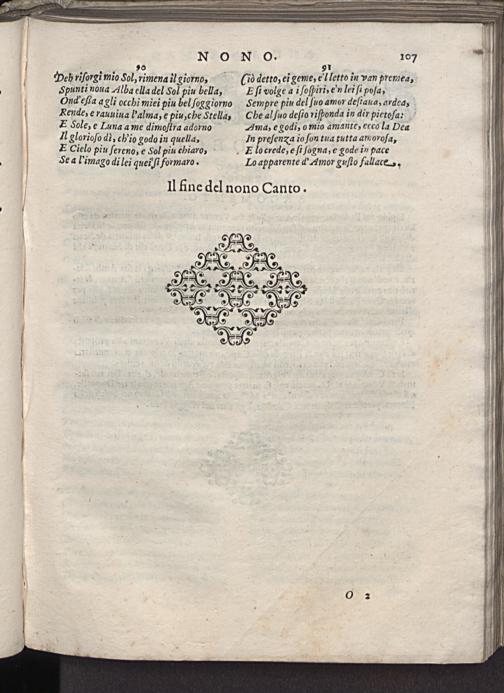 NONO. 107
90
Deh risorgi mio Sol, rimena il giorno,
Spunti noua Alba ella del Sol piu bella,
Ond'essa agli occhi miei piu bel soggiorno
Rende, e rauuiua l'alma, e piu, che Stella,
E Sole, e Luna a me dimostra adorno
Il glorioso dì, ch'io godo in quella,
E Cielo piu sereno, e Sol piu chiaro,
Se a l'imago di lei quei si formaro.
91
Ciò detto, ei geme, e'l letto in van premea,
E si volge a i sospiri, e'n lei si posa,
Sempre piu del suo amor desiaua, ardea,
Che al suo desio risponda in dir pietosa:
Ama, e godi, o mio amante, ecco la Dea
In presenza io son tua tutta amorosa,
E lo crede, e si sogna, e gode in pace
Lo apparente d'Amor gusto fallace.
Il fine del nono Canto.
O 2